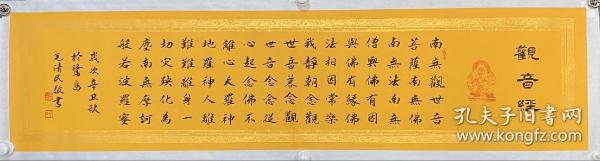 觀音經
南無觀世音
菩薩南無佛
南無法南無
僧與佛有因
與佛有緣佛
法相因常樂
我靜朝念觀
世音暮念觀
世音念念從
心起念佛不
離心天羅神
地羅神人離
難難離身一
切灾殃化為
塵南無摩訶
般若波羅蜜
歲次辛丑秋
於鷺島
毛清民敬書
孔夫子旧书网
book.kongfz.com